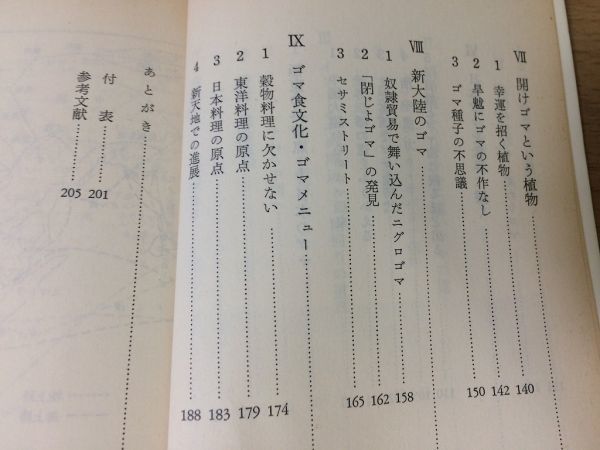 Ⅶ 開けゴマという植物
1 幸運を招く植物 140
2 旱魃にゴマの不作なし 142
3 ゴマ種子の不思議 150
Ⅷ 新大陸のゴマ
1 奴隷貿易で舞い込んだニグロゴマ 158
2 「閉じよゴマ」の発見 162
3 セサミストリート 165
Ⅸ ゴマ食文化・ゴマメニュー
1 穀物料理に欠かせない 174
2 東洋料理の原点 179
3 日本料理の原点 183
4 新天地での進展 188
あとがき
付表 201
参考文献 205